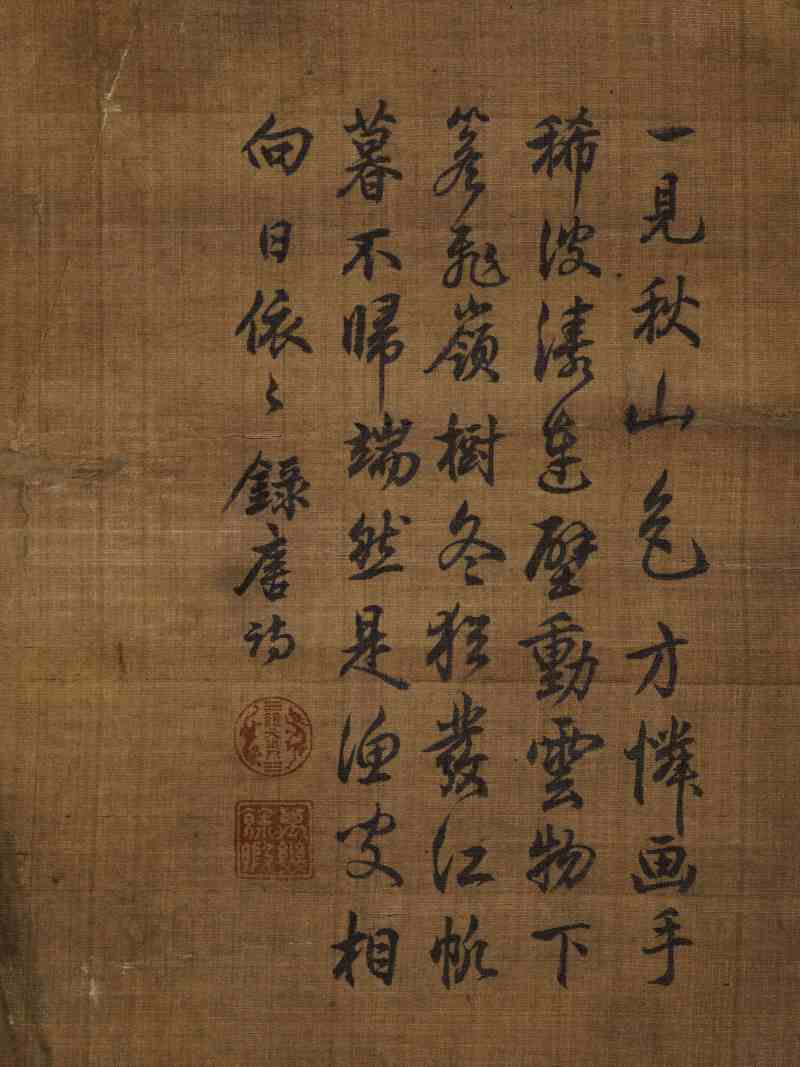 一見秋山色方憐画手
稀波濤連壁動雲物下
簷飛嶺樹冬猶發江帆
暮不歸端然是漁叟相
向日依〻錄唐詩
萬幾餘暇